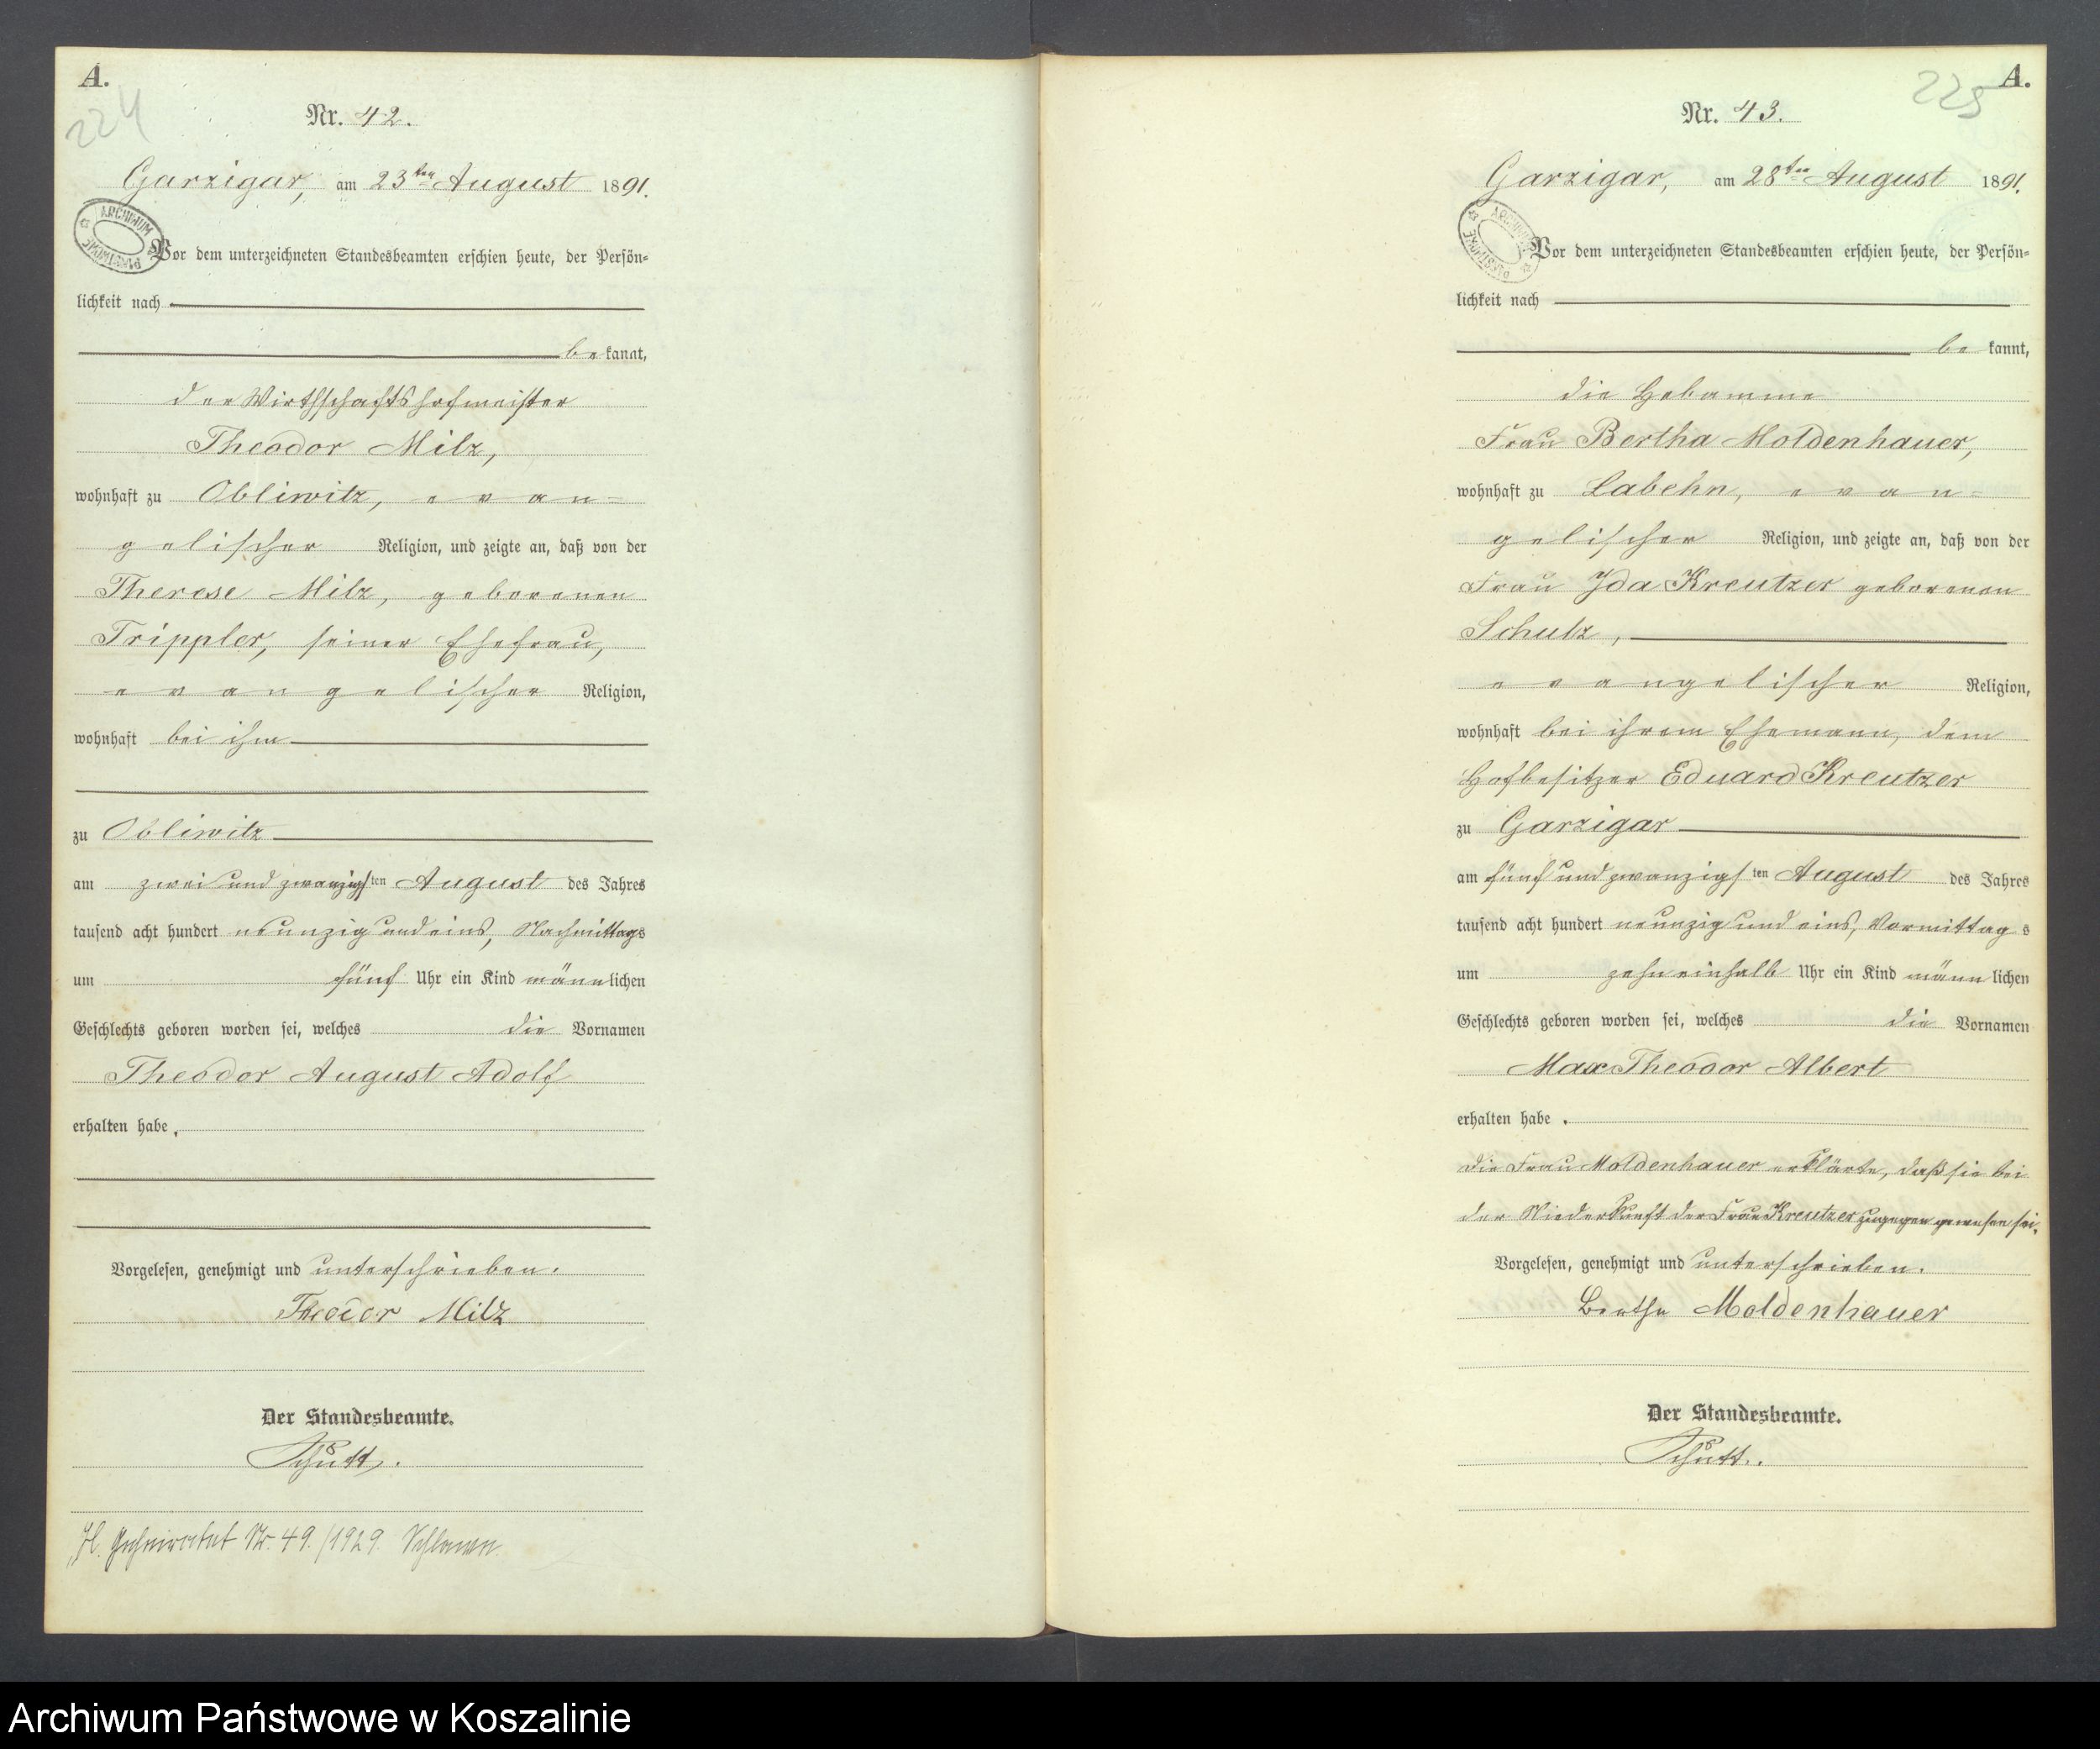 A.
224
Nr. 42.
Garzigar, am 23ten August 1891.
ARCHIWUM PAŃSTWOWE
Vor dem unterzeichneten Standesbeamten erschien heute, der Persön-
lichkeit nach
be kannt,
der Wirthschaftshofmeister
Theodor Milz,
wohnhaft zu Obliwitz, evan-
gelischer Religion, und zeigte an, daß von der
Therese Milz, geborenen
Trippler, seiner Ehefrau,
evangelischer Religion,
wohnhaft bei ihm
zu Obliwitz
am zwei und zwanzigsten August des Jahres
tausend acht hundert neunzig und eins, Nachmittags
um fünf Uhr ein Kind männlichen
Geschlechts geboren worden sei, welches die Vornamen
Theodor August Adolf
erhalten habe.
Vorgelesen, genehmigt und unterschrieben.
Theodor Milz
Der Standesbeamte.
Schutt.
Nr. 49./1929. Schlawe
A.
225
Nr. 43.
Garzigar, am 28ten August 1891.
ARCHIWUM PAŃSTWOWE
Vor dem unterzeichneten Standesbeamten erschien heute, der Persön-
lichkeit nach
be kannt,
die Hebamme
Frau Bertha Moldenhauer,
wohnhaft zu Labehn, evan-
gelischer Religion, und zeigte an, daß von der
Frau Ida Kreutzer geborenen
Schulz,
evangelischer Religion,
wohnhaft bei ihrem Ehemann, dem
Hofbesitzer Eduard Kreutzer
zu Garzigar
am fünf und zwanzigsten August des Jahres
tausend acht hundert neunzig und eins, Vormittags
um zehn einhalb Uhr ein Kind männlichen
Geschlechts geboren worden sei, welches die Vornamen
Max Theodor Albert
erhalten habe.
Die Frau Moldenhauer erklärte, daß sie bei
der Niederkunft der Frau Kreutzer zugegen gewesen sei.
Vorgelesen, genehmigt und unterschrieben.
Bertha Moldenhauer
Der Standesbeamte.
Schutt.
Archiwum Państwowe w Koszalinie